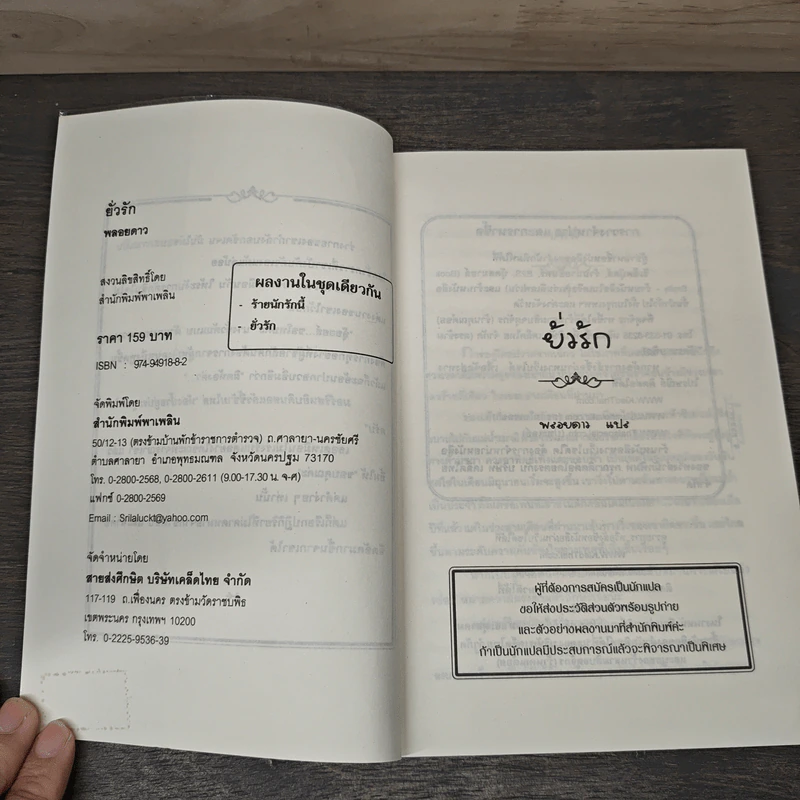 ยั่วรัก
พลอยดาว
สงวนลิขสิทธิ์โดย
สำนักพิมพ์พาเพลิน
ราคา 159 บาท
ISBN : 974-94918-8-2
จัดพิมพ์โดย
สำนักพิมพ์พาเพลิน
50/12-13 (ตรงข้ามบ้านพักข้าราชการตำรวจ) ถ.ศาลายา-นครชัยศรี
ตำบลศาลายา อำเภอพุทธมณฑล จังหวัดนครปฐม 73170
โทร. 0-2800-2568, 0-2800-2611 (9.00-17.30 น. จ-ศ)
แฟกซ์ 0-2800-2569
Email : Srilaluckt@yahoo.com
จัดจำหน่ายโดย
สายส่งศึกษิต บริษัทเคล็ดไทย จำกัด
117-119 ถ.เฟื่องนคร ตรงข้ามวัดราชบพิธ
เขตพระนคร กรุงเทพฯ 10200
โทร. 0-2225-9536-39
ผลงานในชุดเดียวกัน
- ร้ายนักรักนี้
- ยั่วรัก
ยั่วรัก
พลอยดาว แปล
ผู้ที่ต้องการสมัครเป็นนักแปล
ขอให้ส่งประวัติส่วนตัวพร้อมรูปถ่าย
และตัวอย่างผลงานมาที่สำนักพิมพ์ค่ะ
ถ้าเป็นนักแปลมีประสบการณ์แล้วจะพิจารณาเป็นพิเศษ